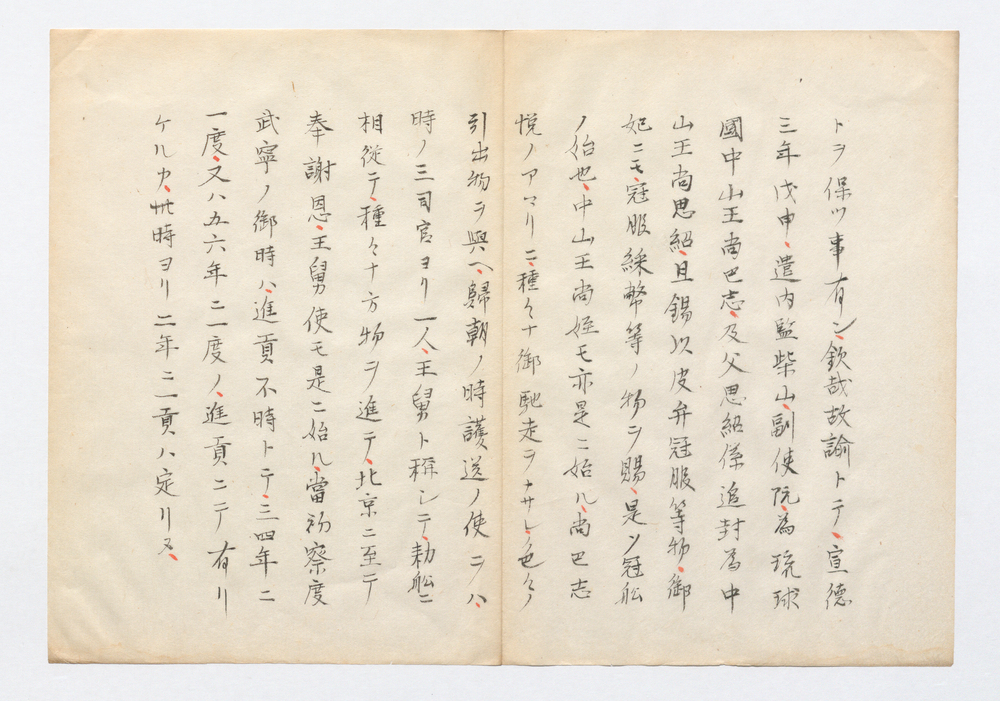 トヲ保ツ事有ン、欽哉故諭トテ、宣德
三年戊申、遣内監柴山、副使阮為琉球
國中山王尚巴志、及父思紹係追封為中
山王尚思紹、且錫以皮弁冠服等物、御
妃ニモ、冠服綵幣等ノ物ヲ賜、是ソ冠舩
ノ始也、中山王尚姪モ亦是ニ始ル、尚巴志
悦ノアマリニ、種々ナ御馳走ヲナサレ、色々ノ
引出物ヲ與ヘ、歸朝ノ時護送ノ使ヲハ、
時ノ三司官ヨリ一人、王舅ト稱シテ、勅舩ニ
相從テ、種々ナ方物ヲ進テ、北京ニ至テ
奉謝恩、王舅使モ是ニ始ル、當初察度
武寧ノ御時ハ、進貢不時トテ、三四年ニ
一度、又ハ五六年ニ一度ノ、進貢ニテ有リ
ケルカ、此時ヨリ二年ニ一貢ハ定リヌ、